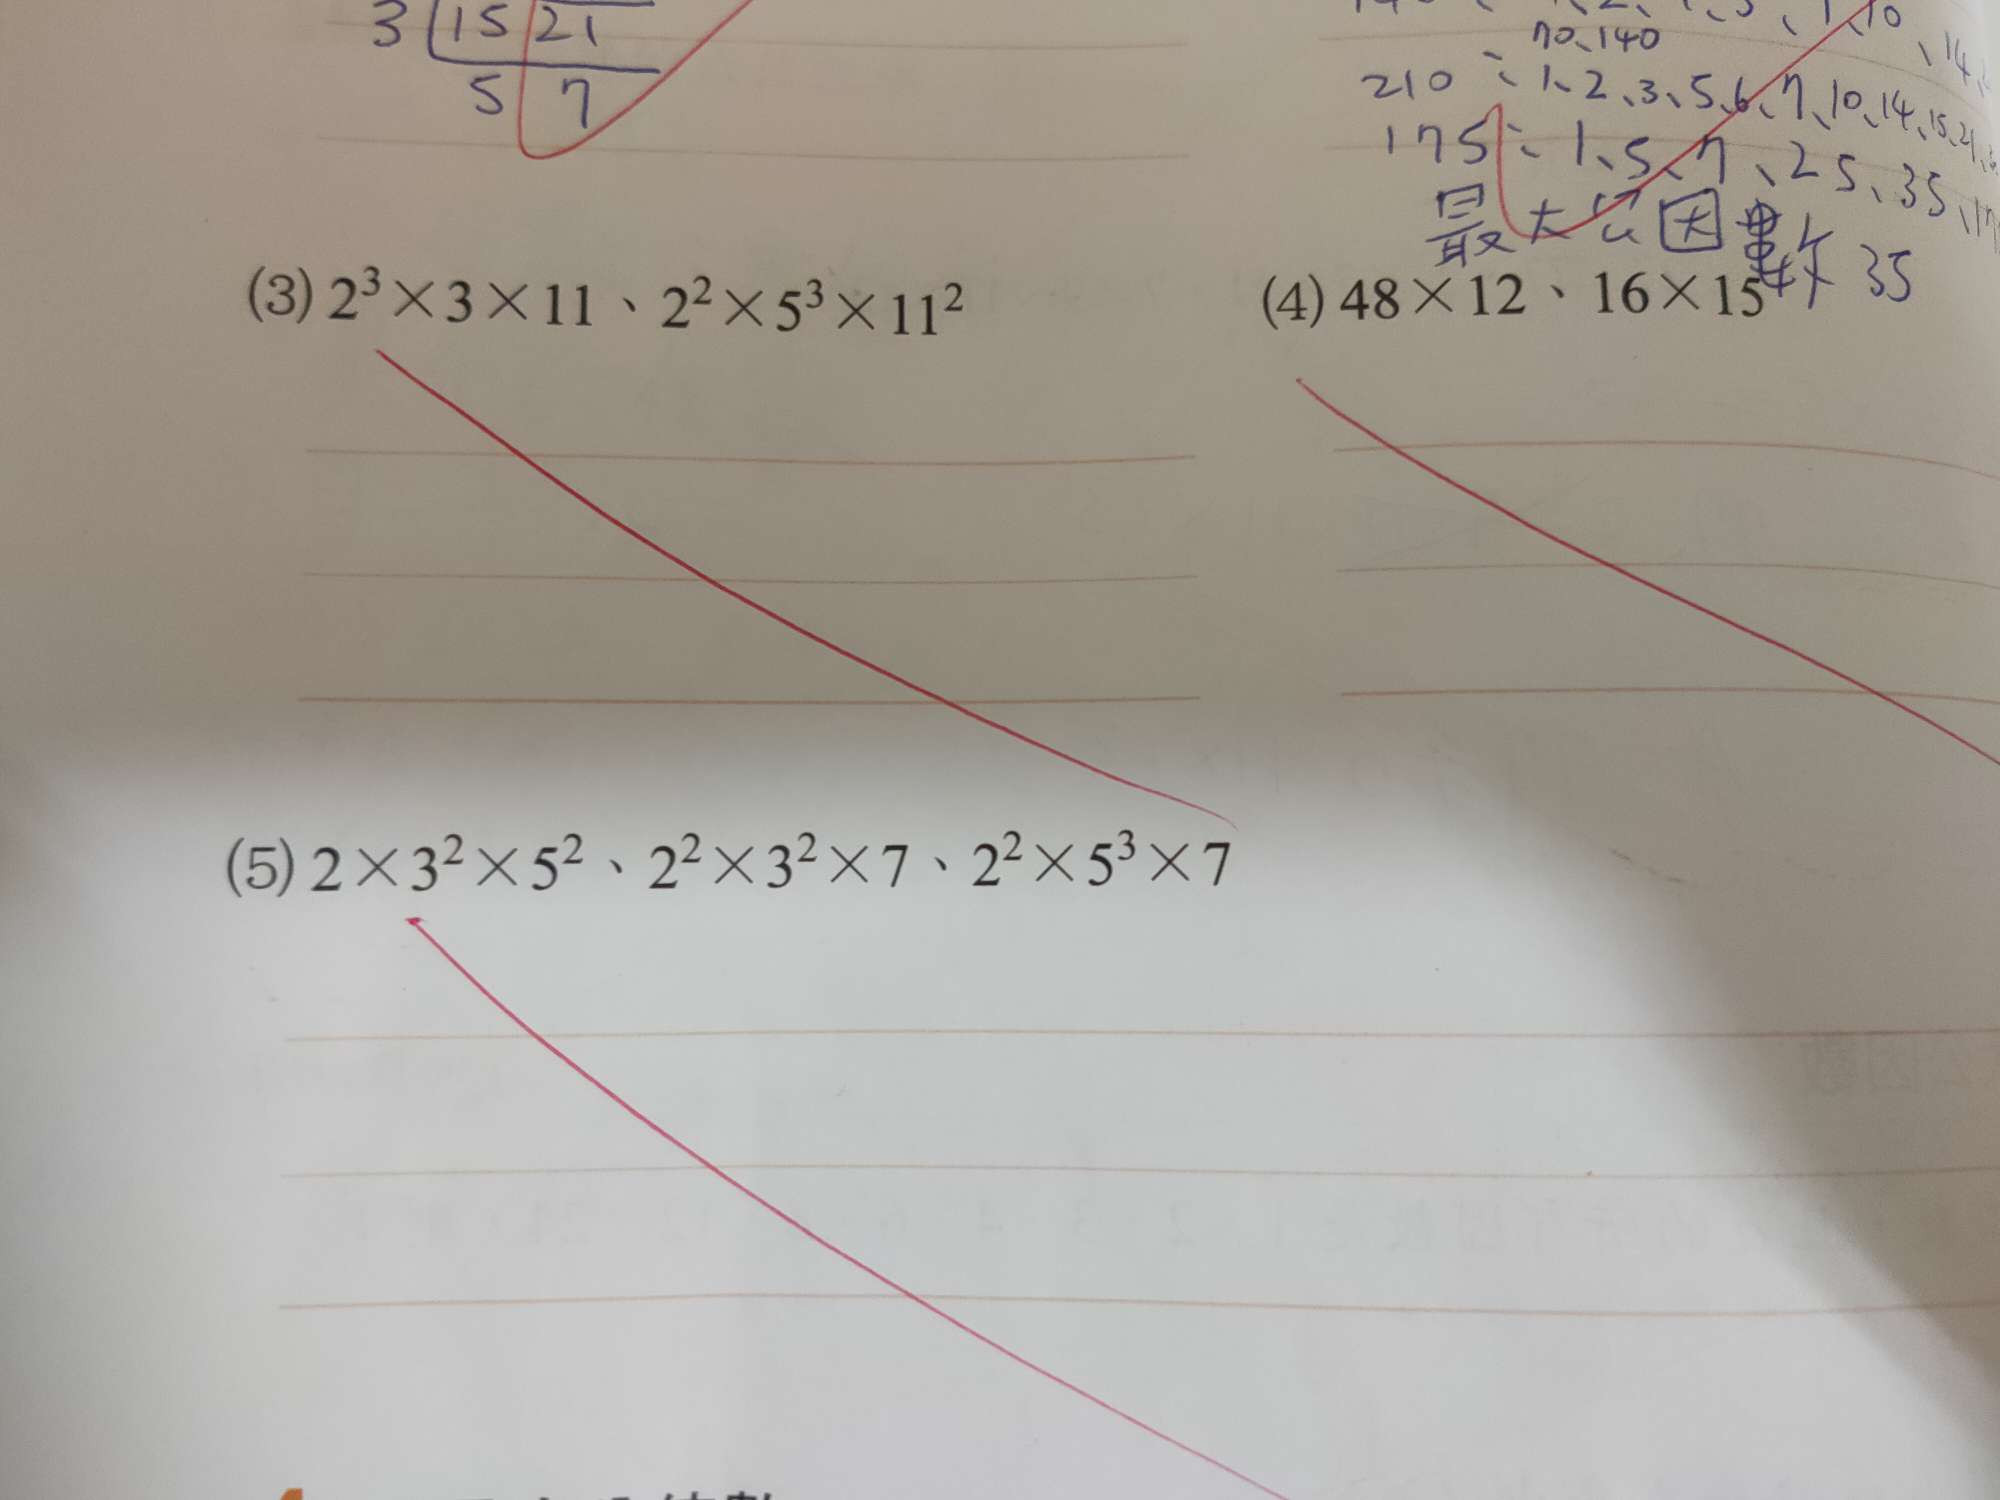 3 15 21
5 7
70、140
210：1、2、3、5、6、7、10、14、15、21、
175：1、5、7、25、35、
最大公因數 35
(3) 2³×3×11、2²×5³×11²
(4) 48×12、16×15
(5) 2×3²×5²、2²×3²×7、2²×5³×7